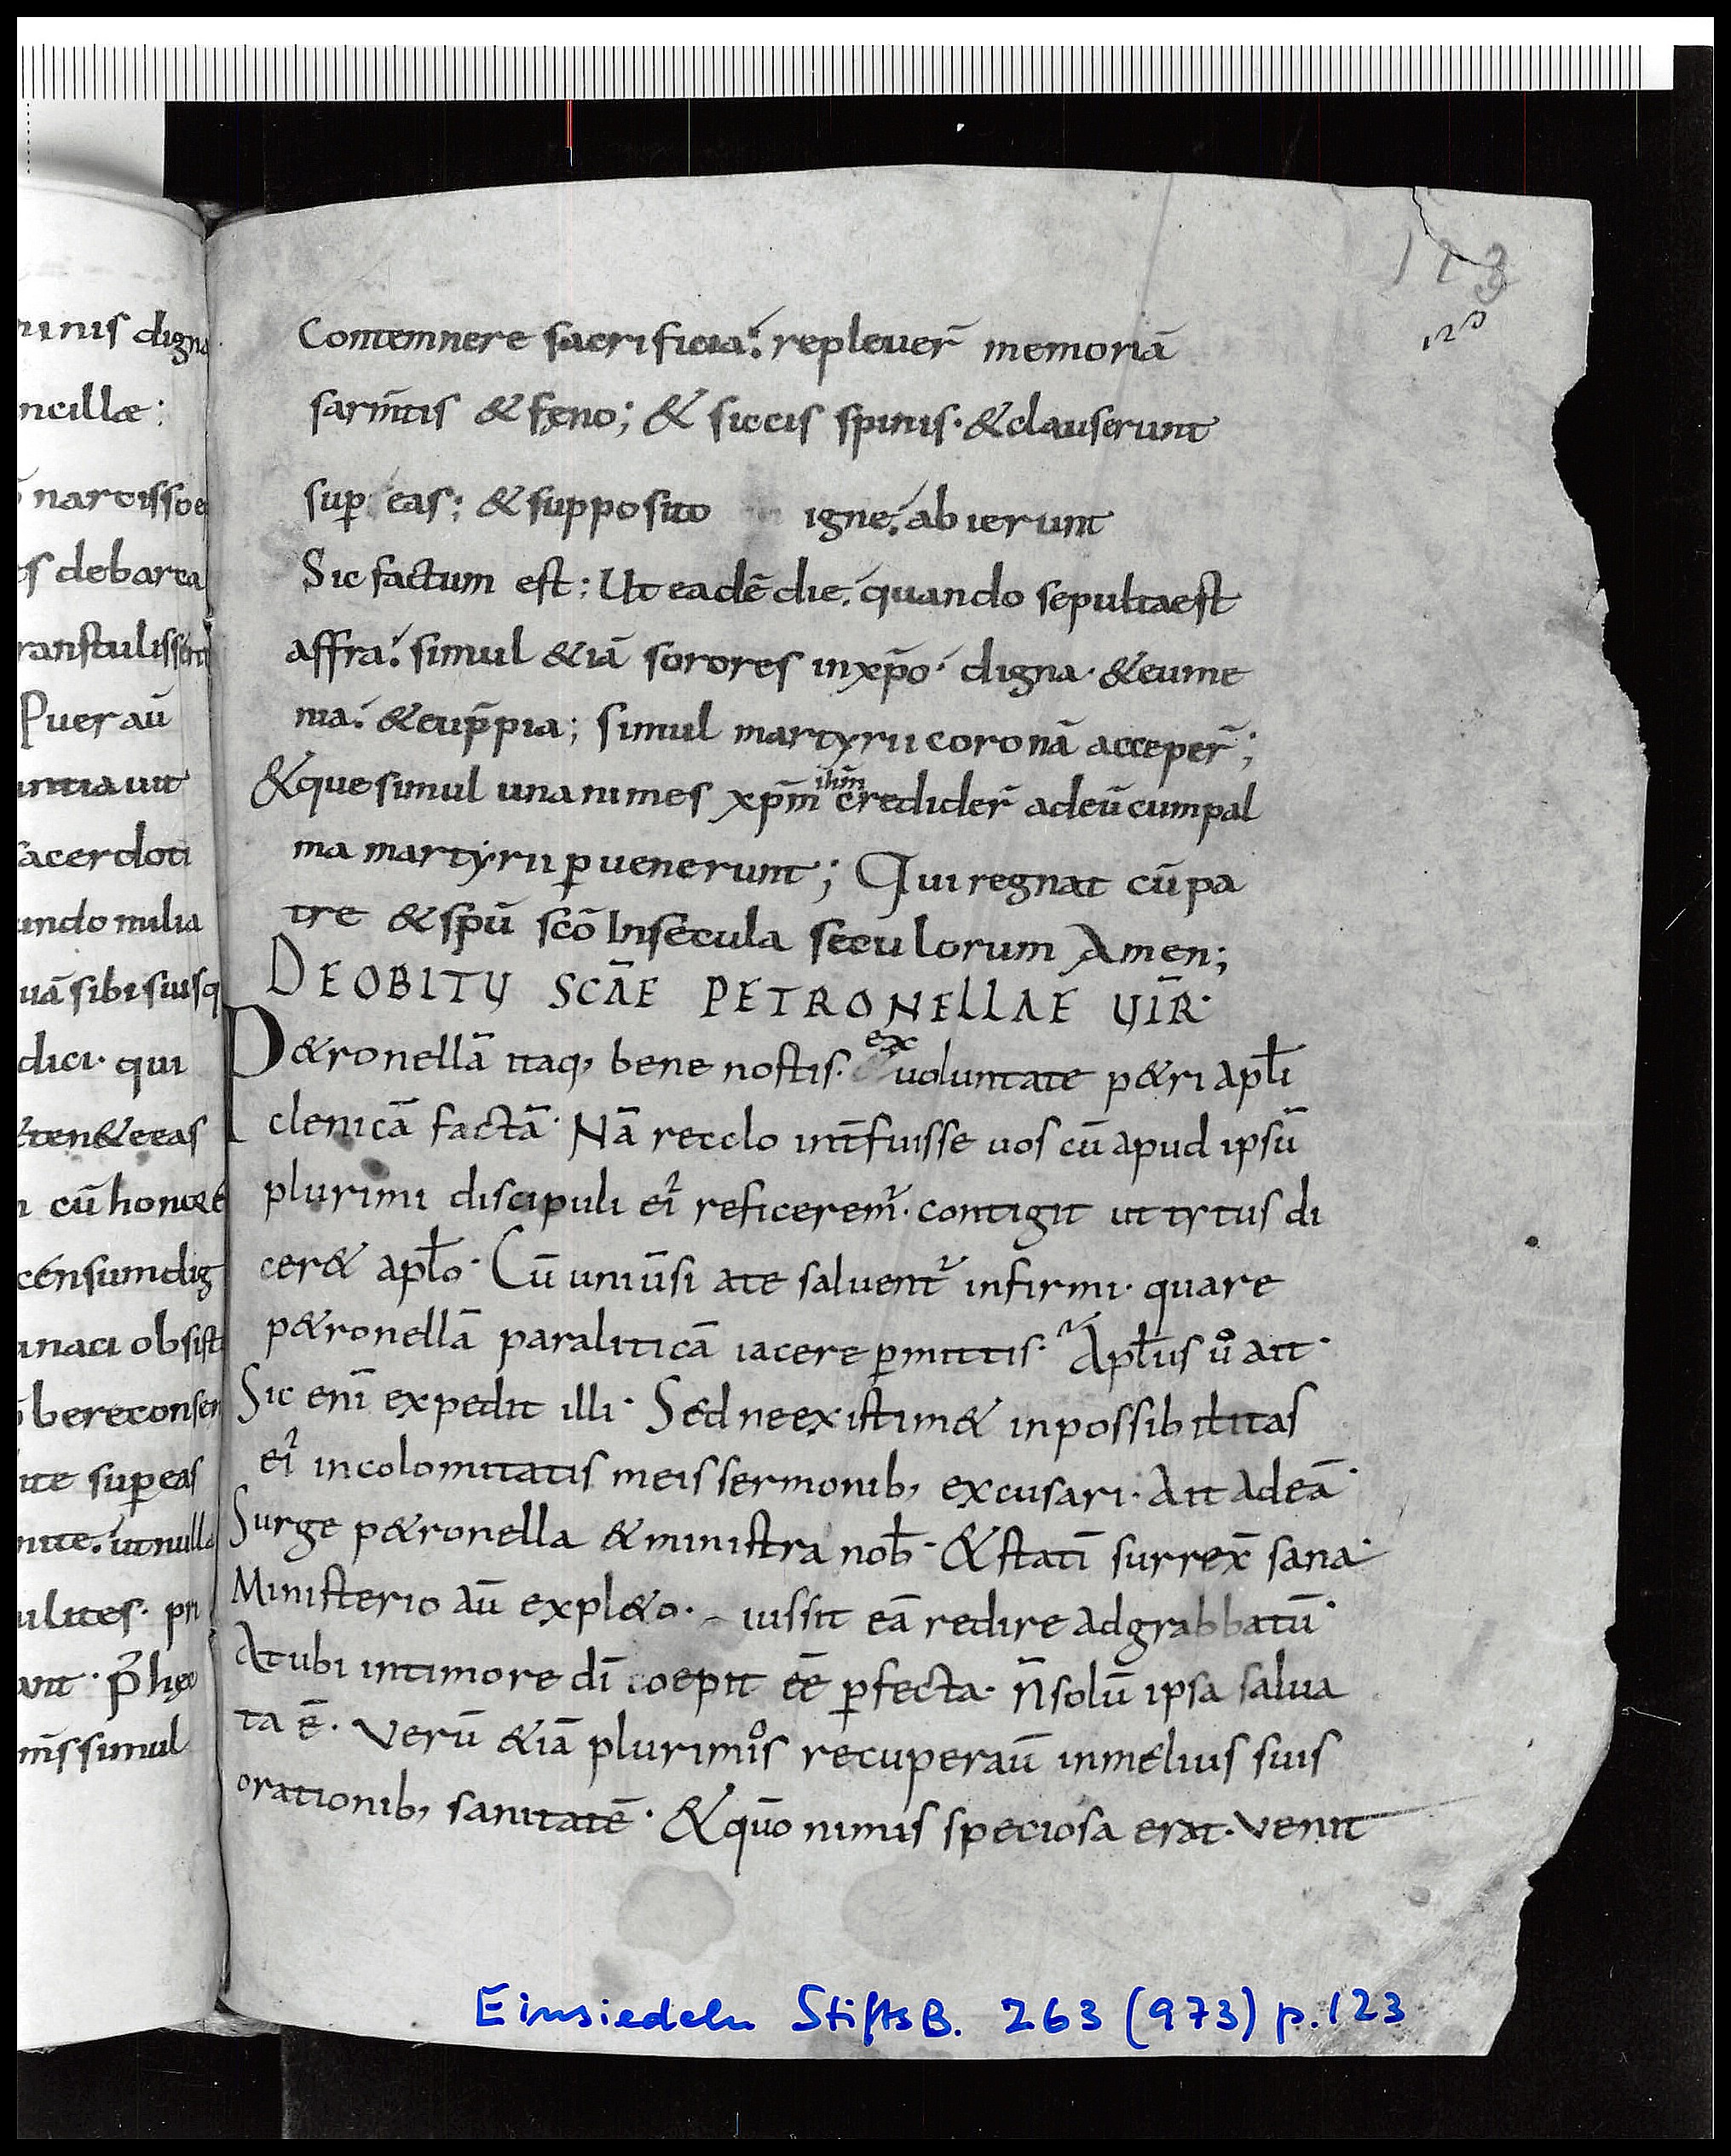 ninis digna
ncillæ:
narcisso e
es debarca
ranstulissent
Puer aū
untiauit
sacerdoti
undo milia
uā sibi suisq
dici· qui
&ten&eas
n cū honore
censum dig
unaci obsist
bereconser
ite sup eas
nite. ut nulla
ulites· pri
uit·
ms simul
123
Contemnere sacrificia. repleuer̄ memoriā
sarm̄tis & fęno; & siccis spinis· & clauserunt
sup̱ eas; & supposito igne. abierunt
Sic factum est: Ut eadē die. quando sepulta est
affra. simul &iā sorores inxp̄o· digna· & eume
nia. & eup̄pia; simul martyrii coronā acceper̄;
&que simul unanimes xp̄m ihm̄ credider̄ adeū cum pal
ma martyrii p̱uenerunt; Qui regnat cū pa
tre & sp̄u sc̄o In secula seculorum Amen;
DE OBITU SCĀE PETRONELLAE UIR̄·
P&ronellā itaq, bene nostis· ex uoluntate p&ri apl̄i
clenicā factā· Nā recolo int̄fuisse uos cū apud ipsū
plurimi discipuli ei' reficerem̄'· contigit ut tytus di
cer& apl̄o· Cū uniūsi a te saluent' infirmi· quare
p&ronellā paraliticā iacere p̱mittis· Apl̄us ů ait·
Sic enī expedit illi· Sed ne existim& inpossibilitas
ei' incolomitatis meis sermonib, excusari· Ait ad eā·
Surge p&ronella & ministra nob̄· & statī surrex̄ sana·
Ministerio aū expl&o· iussit eā redire ad grabbatū·
At ubi in timore dī coepit eē p̱fecta· n̄ solū ipsa salua
ta ē· verū &iā plurimos recuperaū in melius suis
orationib, sanitatē· & quō nimis speciosa erat· venit
Einsiedeln StiftsB. 263 (973) p. 123